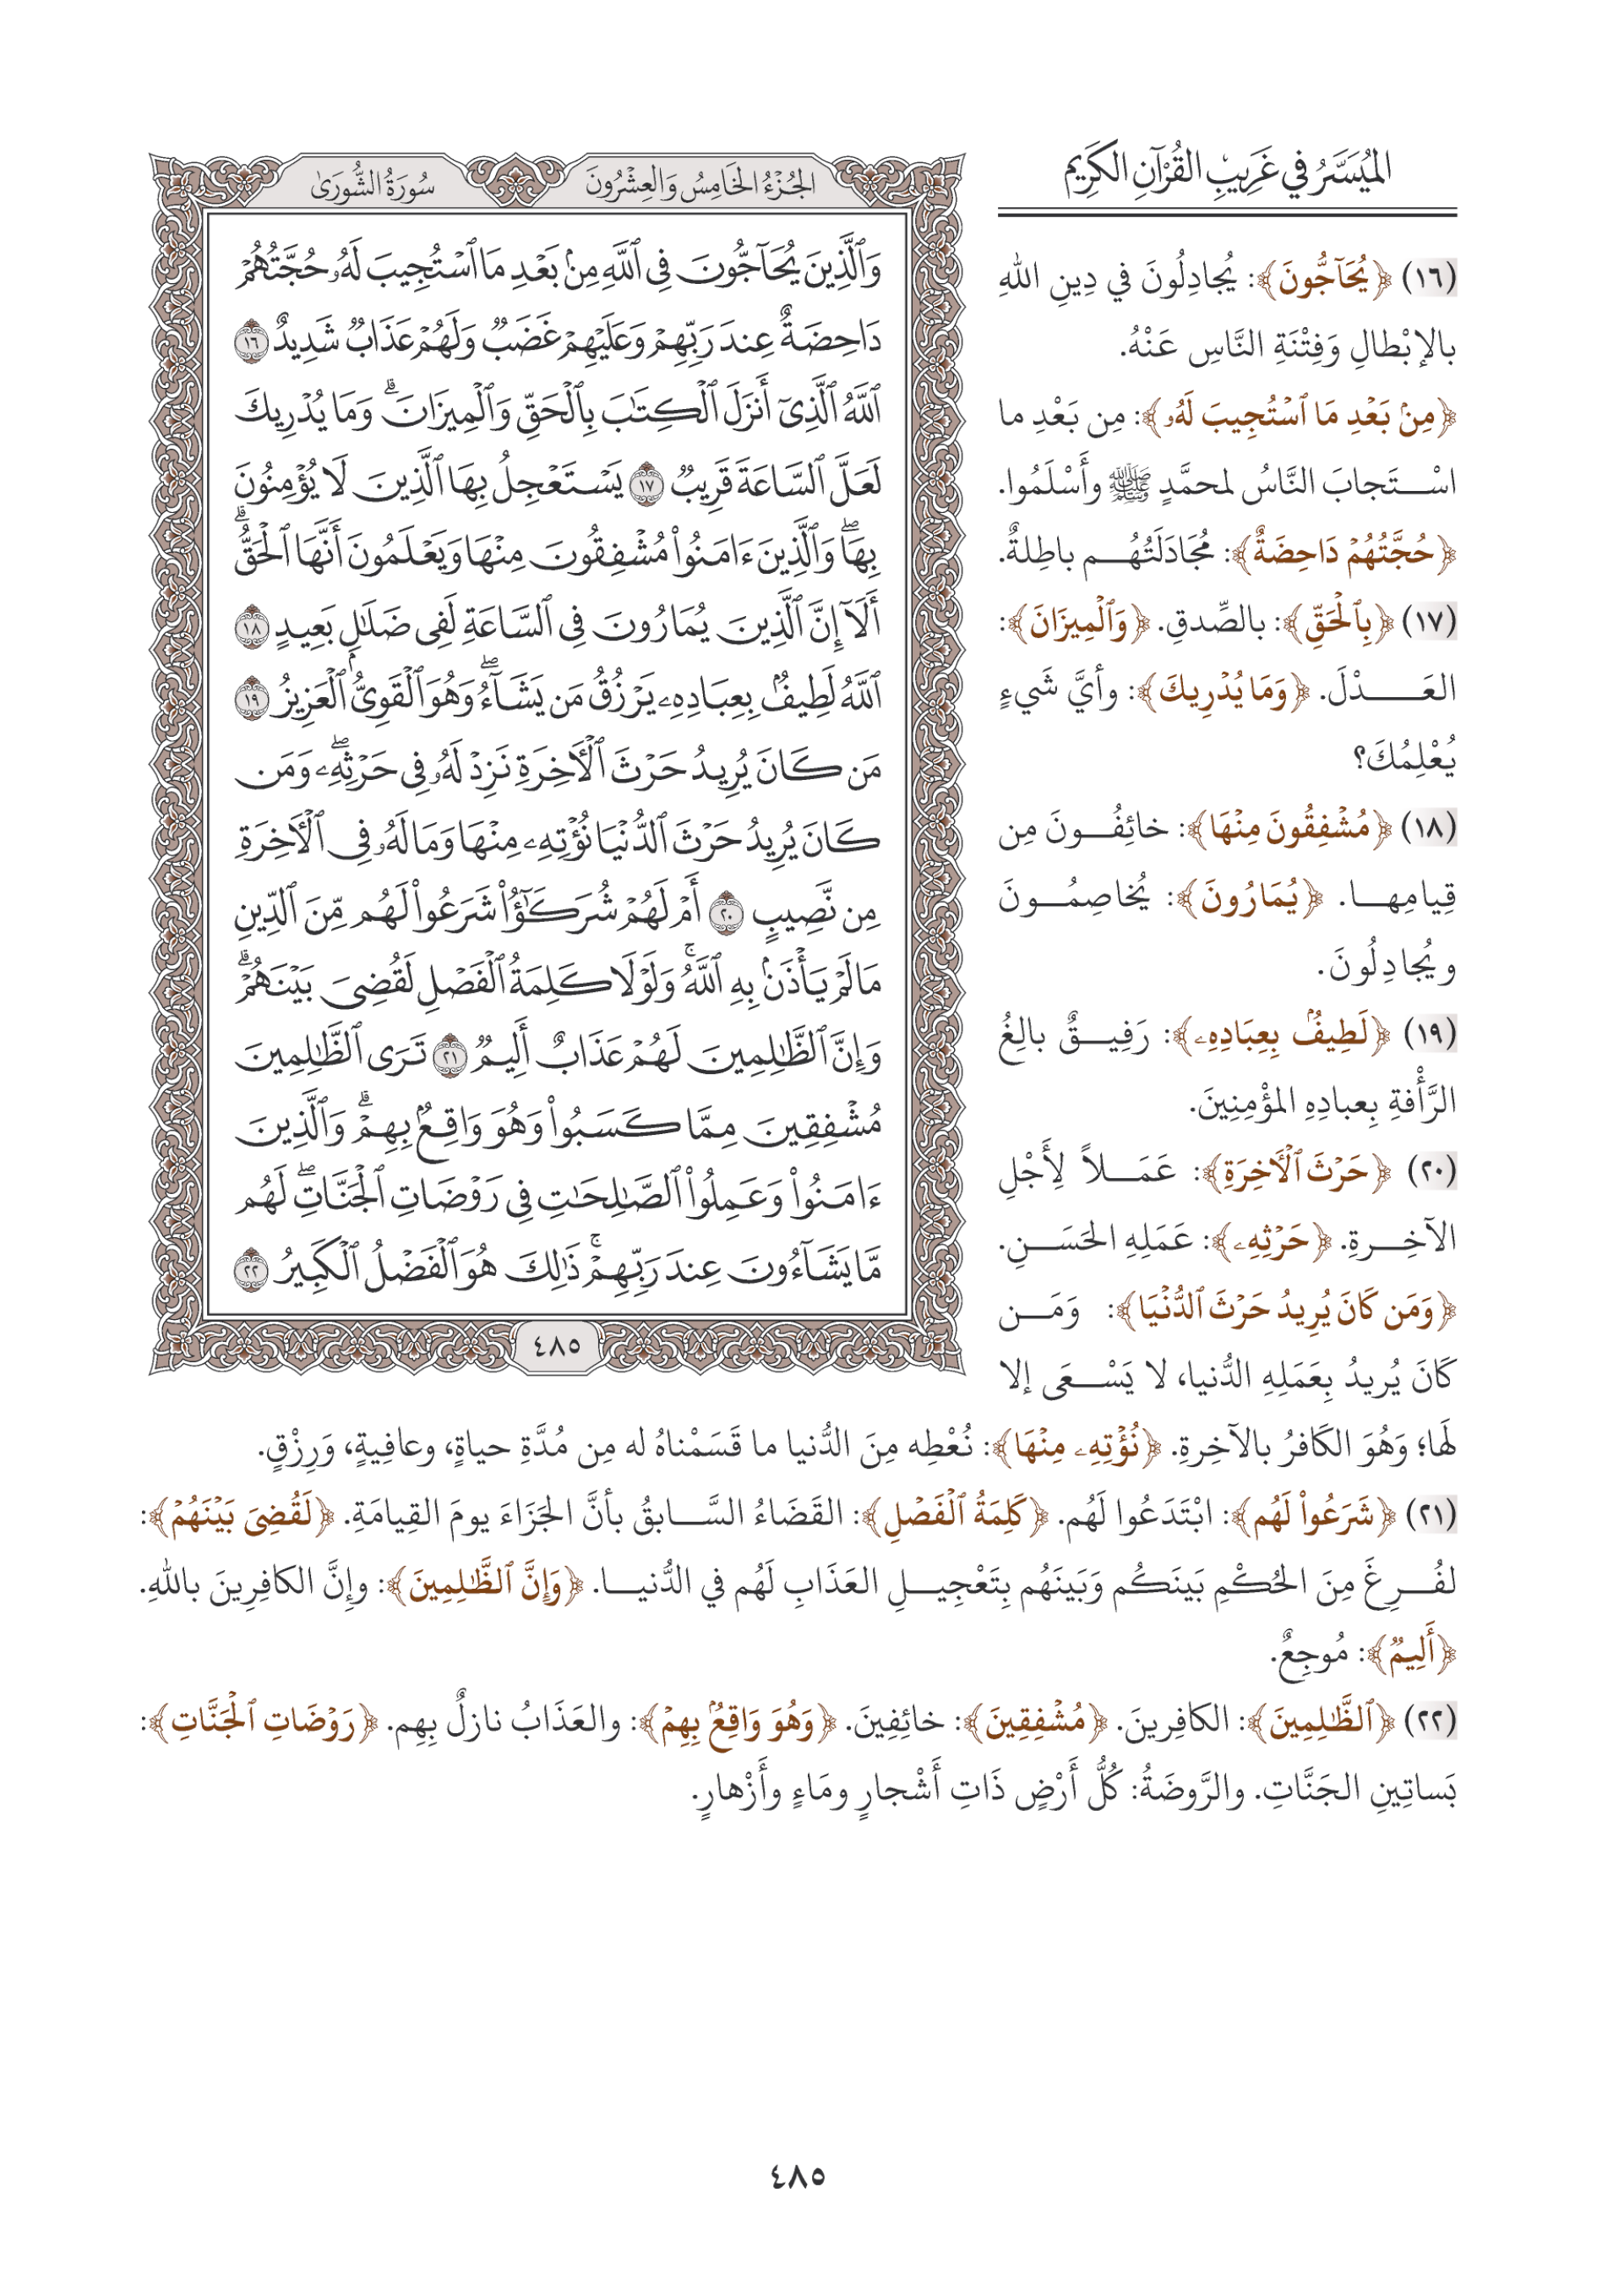 المُيَسَّرُ في غَرِيبِ القُرْآنِ الكَرِيم
الجُزْءُ الخَامِسُ وَالعِشْرُونَ
سُورَةُ الشُّورَىٰ
وَٱلَّذِينَ يُحَآجُّونَ فِي ٱللَّهِ مِنۢ بَعۡدِ مَا ٱسۡتُجِيبَ لَهُۥ حُجَّتُهُمۡ
دَاحِضَةٌ عِندَ رَبِّهِمۡ وَعَلَيۡهِمۡ غَضَبٞ وَلَهُمۡ عَذَابٞ شَدِيدٌ ١٦
ٱللَّهُ ٱلَّذِيٓ أَنزَلَ ٱلۡكِتَٰبَ بِٱلۡحَقِّ وَٱلۡمِيزَانَۗ وَمَا يُدۡرِيكَ
لَعَلَّ ٱلسَّاعَةَ قَرِيبٞ ١٧ يَسۡتَعۡجِلُ بِهَا ٱلَّذِينَ لَا يُؤۡمِنُونَ
بِهَاۖ وَٱلَّذِينَ ءَامَنُواْ مُشۡفِقُونَ مِنۡهَا وَيَعۡلَمُونَ أَنَّهَا ٱلۡحَقُّۗ
أَلَآ إِنَّ ٱلَّذِينَ يُمَارُونَ فِي ٱلسَّاعَةِ لَفِي ضَلَٰلِۭ بَعِيدٍ ١٨
ٱللَّهُ لَطِيفُۢ بِعِبَادِهِۦ يَرۡزُقُ مَن يَشَآءُۖ وَهُوَ ٱلۡقَوِيُّ ٱلۡعَزِيزُ ١٩
مَن كَانَ يُرِيدُ حَرۡثَ ٱلۡأٓخِرَةِ نَزِدۡ لَهُۥ فِي حَرۡثِهِۦۖ وَمَن
كَانَ يُرِيدُ حَرۡثَ ٱلدُّنۡيَا نُؤۡتِهِۦ مِنۡهَا وَمَا لَهُۥ فِي ٱلۡأٓخِرَةِ
مِن نَّصِيبٍ ٢٠ أَمۡ لَهُمۡ شُرَكَٰٓؤُاْ شَرَعُواْ لَهُم مِّنَ ٱلدِّينِ
مَا لَمۡ يَأۡذَنۢ بِهِ ٱللَّهُۚ وَلَوۡلَا كَلِمَةُ ٱلۡفَصۡلِ لَقُضِيَ بَيۡنَهُمۡۗ
وَإِنَّ ٱلظَّٰلِمِينَ لَهُمۡ عَذَابٌ أَلِيمٞ ٢١ تَرَى ٱلظَّٰلِمِينَ
مُشۡفِقِينَ مِمَّا كَسَبُواْ وَهُوَ وَاقِعُۢ بِهِمۡۗ وَٱلَّذِينَ
ءَامَنُواْ وَعَمِلُواْ ٱلصَّٰلِحَٰتِ فِي رَوۡضَاتِ ٱلۡجَنَّاتِۖ لَهُم
مَّا يَشَآءُونَ عِندَ رَبِّهِمۡۚ ذَٰلِكَ هُوَ ٱلۡفَضۡلُ ٱلۡكَبِيرُ ٢٢
٤٨٥
(١٦) ﴿يُحَآجُّونَ﴾: يُجادِلُونَ في دِينِ اللهِ
بالإبْطالِ وَفِتْنَةِ النَّاسِ عَنْهُ.
﴿مِنۢ بَعۡدِ مَا ٱسۡتُجِيبَ لَهُۥ﴾: مِن بَعْدِ ما
اسْتَجابَ النَّاسُ لمحمَّدٍ ﷺ وأَسْلَمُوا.
﴿حُجَّتُهُمۡ دَاحِضَةٌ﴾: مُجَادَلَتُهُم باطِلةٌ.
(١٧) ﴿بِٱلۡحَقِّ﴾: بالصِّدقِ. ﴿وَٱلۡمِيزَانَ﴾:
العَدْلَ. ﴿وَمَا يُدۡرِيكَ﴾: وأيَّ شَيءٍ
يُعْلِمُكَ؟
(١٨) ﴿مُشۡفِقُونَ مِنۡهَا﴾: خائِفُونَ مِن
قِيامِها. ﴿يُمَارُونَ﴾: يُخاصِمُونَ
ويُجادِلُونَ.
(١٩) ﴿لَطِيفُۢ بِعِبَادِهِۦ﴾: رَفِيقٌ بالِغُ
الرَّأْفةِ بِعبادِهِ المؤْمِنِينَ.
(٢٠) ﴿حَرۡثَ ٱلۡأٓخِرَةِ﴾: عَمَلاً لِأَجْلِ
الآخِرةِ. ﴿حَرۡثِهِۦ﴾: عَمَلِهِ الحَسَنِ.
﴿وَمَن كَانَ يُرِيدُ حَرۡثَ ٱلدُّنۡيَا﴾: وَمَن
كَانَ يُرِيدُ بِعَمَلِهِ الدُّنيا، لا يَسْعَى إلا
لَها؛ وَهُوَ الكَافرُ بالآخِرةِ. ﴿نُؤۡتِهِۦ مِنۡهَا﴾: نُعْطِه مِنَ الدُّنيا ما قَسَمْناهُ له مِن مُدَّةِ حياةٍ، وعافِيةٍ، وَرِزْقٍ.
(٢١) ﴿شَرَعُواْ لَهُم﴾: ابْتَدَعُوا لَهُم. ﴿كَلِمَةُ ٱلۡفَصۡلِ﴾: القَضَاءُ السَّابقُ بأنَّ الجَزَاءَ يومَ القِيامَةِ. ﴿لَقُضِيَ بَيۡنَهُمۡ﴾:
لفُرِغَ مِنَ الحُكْمِ بَينَكُم وَبَينَهُم بِتَعْجِيلِ العَذَابِ لَهُم في الدُّنيا. ﴿وَإِنَّ ٱلظَّٰلِمِينَ﴾: وإِنَّ الكافِرِينَ باللهِ.
﴿أَلِيمٞ﴾: مُوجِعٌ.
(٢٢) ﴿ٱلظَّٰلِمِينَ﴾: الكافِرِينَ. ﴿مُشۡفِقِينَ﴾: خائِفِينَ. ﴿وَهُوَ وَاقِعُۢ بِهِمۡ﴾: والعَذَابُ نازلٌ بِهِم. ﴿رَوۡضَاتِ ٱلۡجَنَّاتِ﴾:
بَساتِينِ الجَنَّاتِ. والرَّوضَةُ: كُلُّ أَرْضٍ ذَاتِ أَشْجارٍ ومَاءٍ وأَزْهارٍ.
٤٨٥